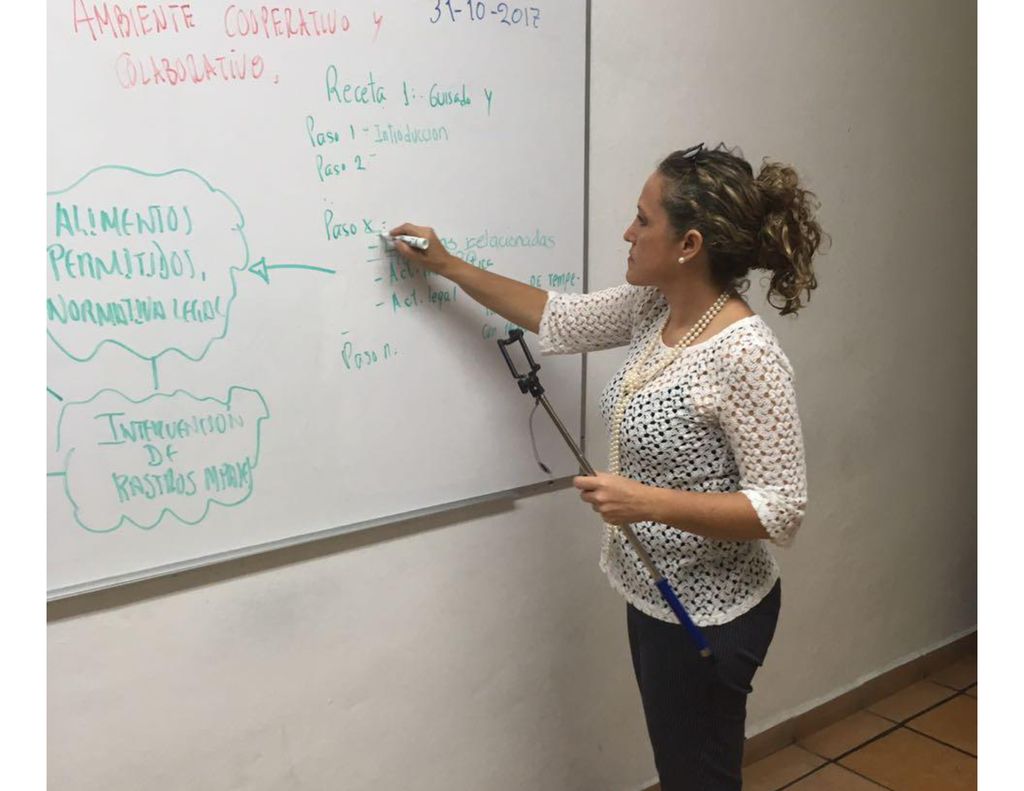 AMBIENTE COOPERATIVO Y
COLABORATIVO.
31-10-2017
Receta 1:- Guisado y
Paso 1 - Introduccion
Paso 2 -
Paso x -
relacionadas
- Act.
- Act. legal
DE TEMPE-
Paso n.
ALIMENTOS
PERMITIDOS,
NORMATIVA LEGAL
INTERVENCION
DE
RASTROS